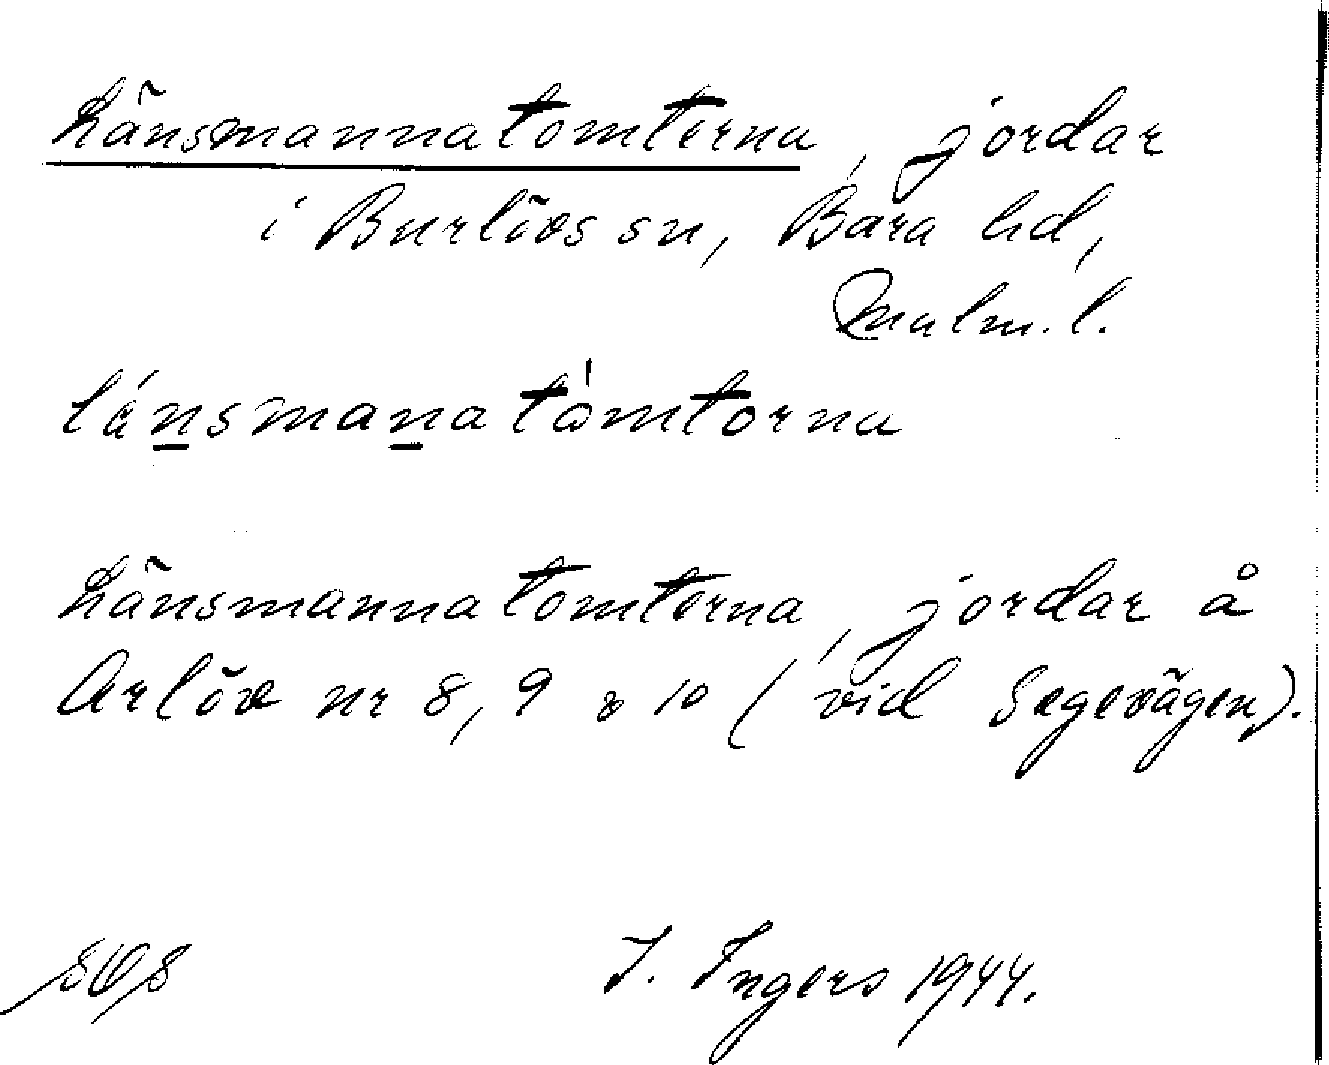 Länsmannatomterna, jordar
i Burlövs sn, Bara hd,
Malm. l.
lánsmanatåmtorna
Länsmannatomterna, jordar å
Arlöv nr 8, 9 o 10 (vid Segevägen).
I. Ingers 1944.